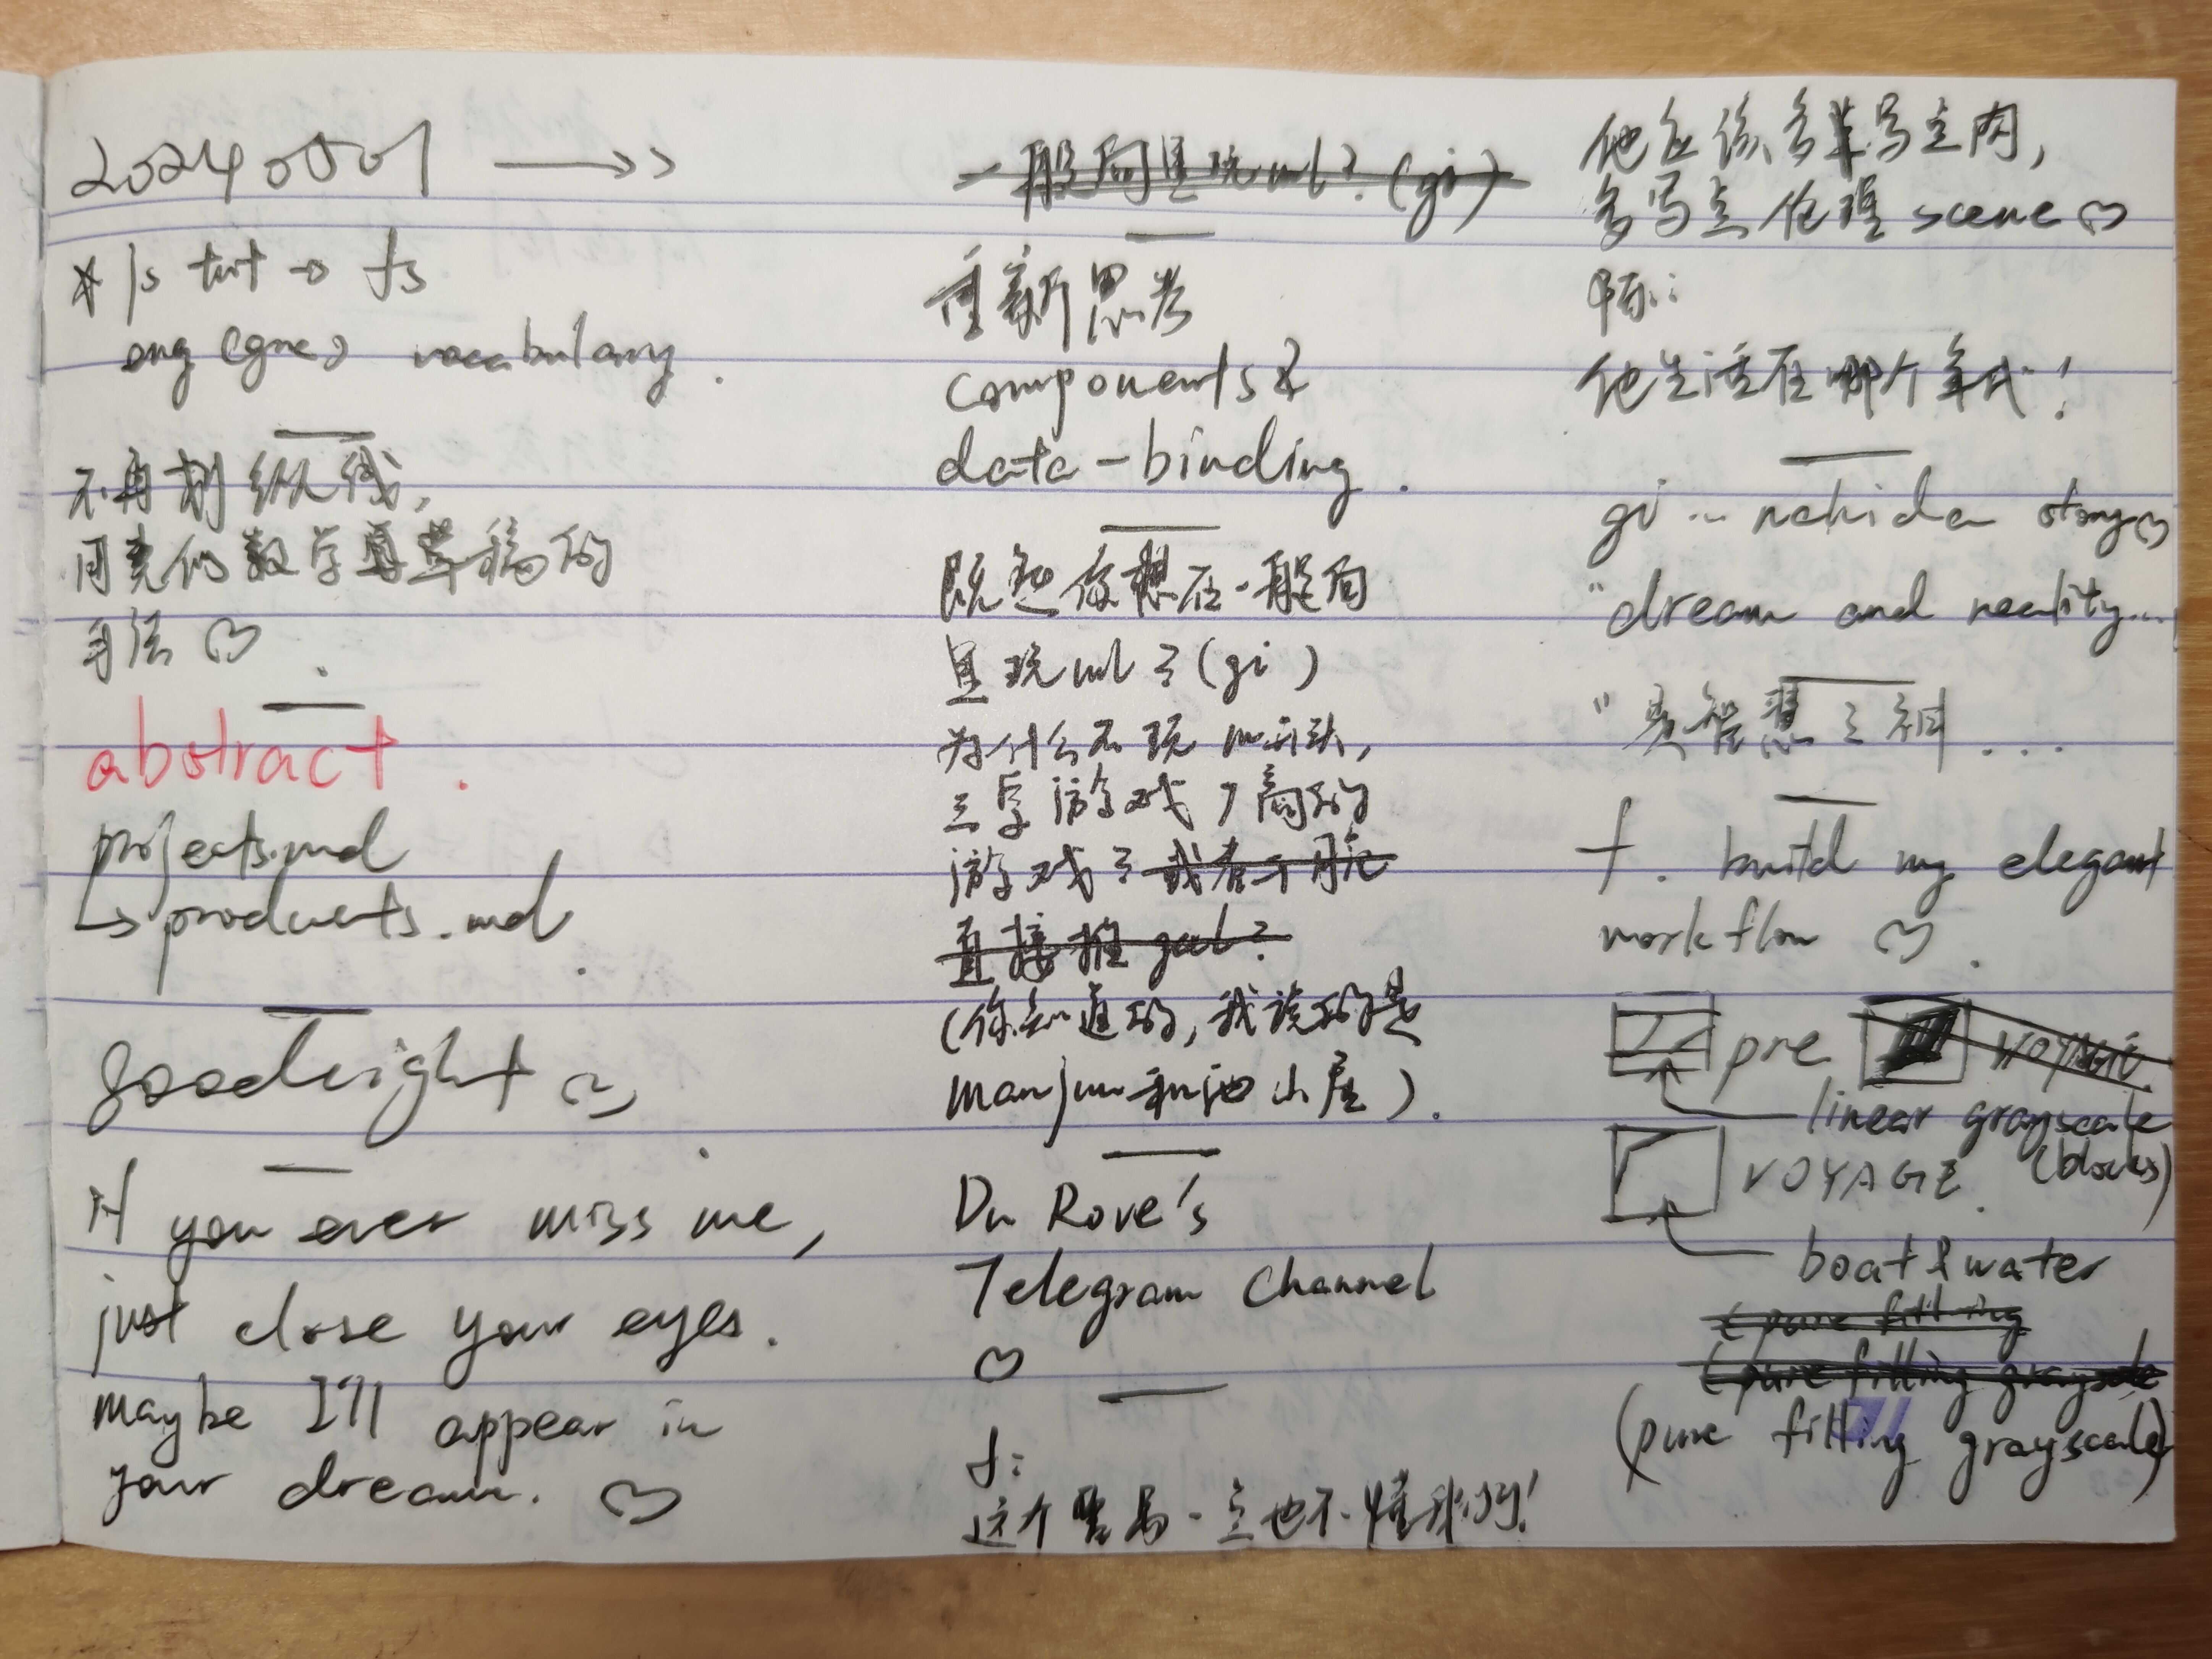 20240501 →
ong (gre) vocabulary.
不再划纵线,
用
数学草稿的
手法 ♡.
abstract.
projects.md
↳ products.md.
goodnight ~.
If you ever miss me,
just close your eyes.
maybe I'll appear in
your dream. ♡
重新思考
components &
data-binding.
既然你想在一般向
里玩 (gi)
为什么不玩
游戏
游戏
直接推 gal?
(你知道的, 我说的是
manjuu 和 小屋).
Du Rove's
Telegram Channel
♡
f:
这个 一点也不懂我的!
他应该 写主肉,
多写点伦理 scene ♡
陌:
他生活在哪个年代!
gi ... nahida story ♡
"dream and reality...
" 智慧之神...
f. build my elegant
workflow ♡.
pre VOYAGE.
linear grayscale
(blocks)
VOYAGE.
boat & water
(pure filling
(pure filling grayscale
(pure filling grayscale)